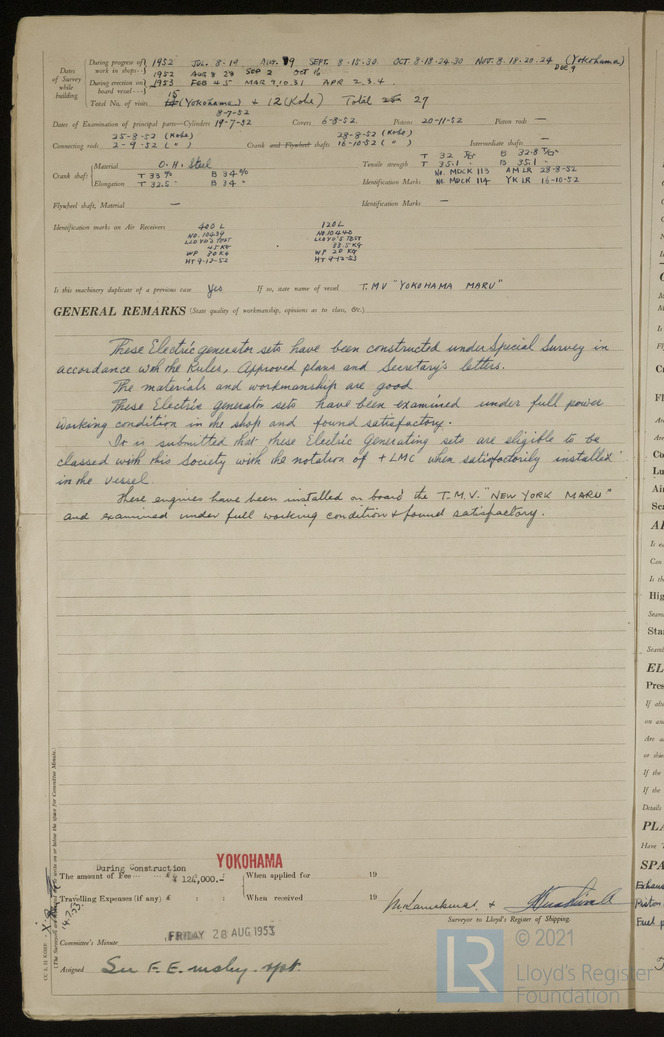 Dates of Survey while building
During progress of work in shops 1952 JUL. 8-19 AUG. 19 SEPT. 8-15-30 OCT. 8-18-24-30 NOV. 8-18-20-24 (Yokohama)
1952 AUG 8 28 SEP 2 OCT 16 DEC 9
During erection on board vessel 1953 FEB 4.5 MAR 9,10.31 APR 2.3.4.
Total No. of visits 15 (Yokohama) + 12 (Kobe) Total 27
8-7-52
Dates of Examination of principal parts—Cylinders 19-7-52 Covers 6-8-52 Pistons 20-11-52 Piston rods —
25-8-52 (Kobe) 28-8-52 (Kobe)
Connecting rods 2-9-52 ( " ) Crank and Flywheel shafts 16-10-52 ( " ) Intermediate shafts —
Crank shaft Material O.H. Steel Tensile strength T 32 B 32.8
T 35.1 B 35.1
Elongation T 33 % B 34 % Identification Marks No. MDCK 113 AM LR 28-8-52
T 32.5 " B 34 " No. MDCK 114 YK LR 16-10-52
Flywheel shaft, Material — Identification Marks —
Identification marks on Air Receivers 400 L 120 L
NO. 10439 NO. 10440
LLOYD'S TEST LLOYD'S TEST
45 KG 33.5 KG
WP 30 KG WP 20 KG
HT 9-12-52 HT 9-12-53
Is this machinery duplicate of a previous case Yes If so, state name of vessel T.M.V "YOKOHAMA MARU"
GENERAL REMARKS (State quality of workmanship, opinions as to class, &c.)
These Electric generator sets have been constructed under Special Survey in
accordance with the Rules, Approved plans and Secretary's letters.
The materials and workmanship are good
These Electric generator sets have been examined under full power
working condition in the shop and found satisfactory.
It is submitted that these Electric Generating sets are eligible to be
classed with this Society with the notation of + LMC when satisfactorily installed
in the vessel
These engines have been installed on board the T.M.V. "NEW YORK MARU"
and examined under full working condition & found satisfactory.
During Construction YOKOHAMA
The amount of Fee £ ¥ 124,000.- When applied for 19
Travelling Expenses (if any) £ : : When received 19
Surveyor to Lloyd's Register of Shipping.
Committee's Minute FRIDAY 28 AUG 1953
Assigned See F. E. mchy. rpt.
© 2021
Lloyd's Register
Foundation